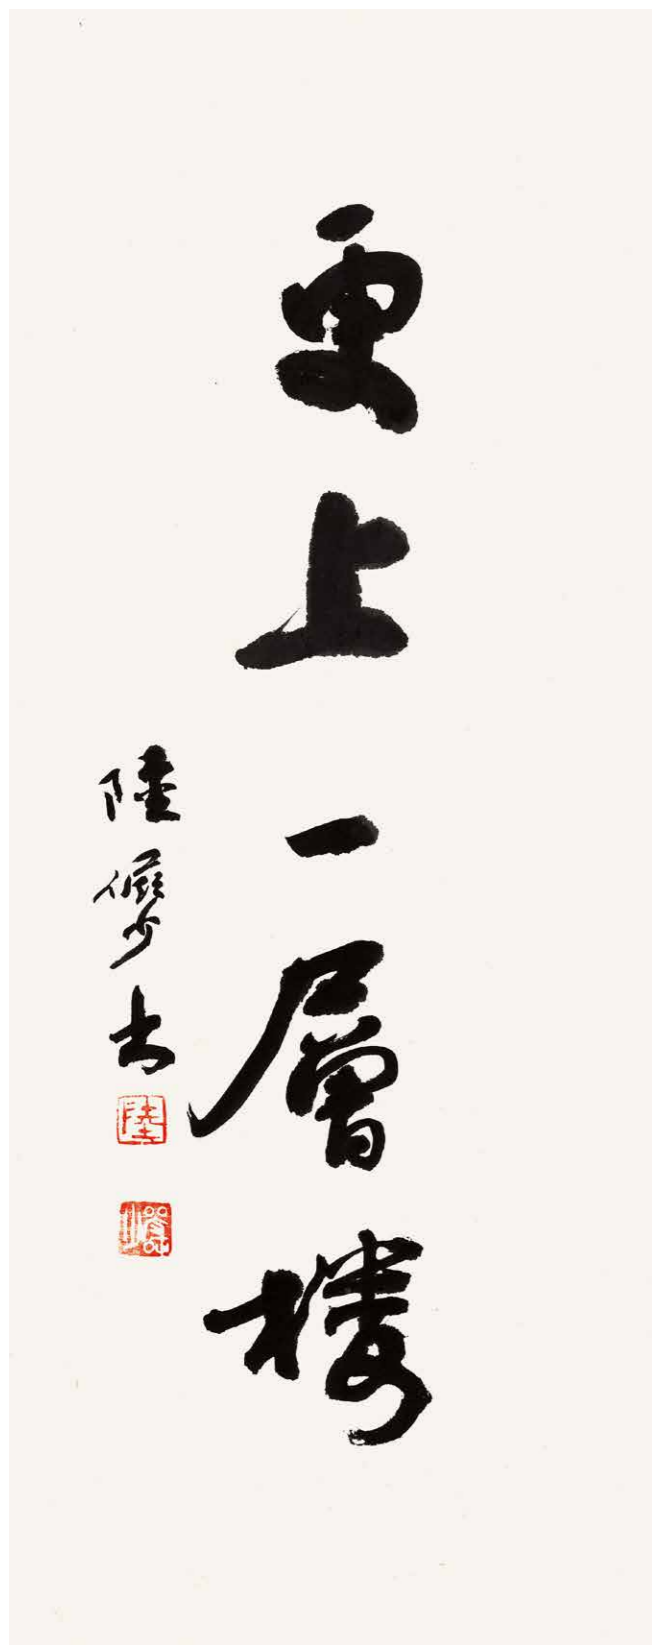 更上一層樓
陸儼少書
陸